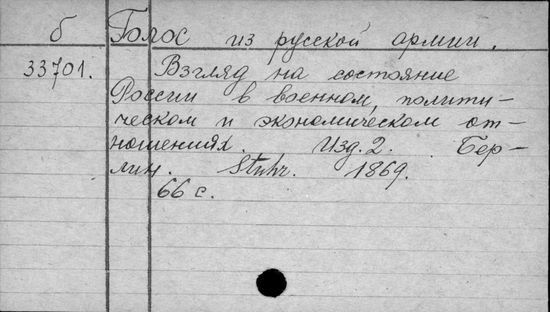 б Голос из русской армии.
33701. Взгляд на состояние
России в военном, полити-
ческом и экономическом от-
ношениях. Изд. 2. Бер-
лин. Stuhr. 1869.
66 с.